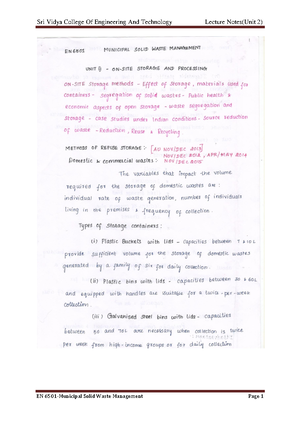 Sri Vidya College Of Engineering And Technology Lecture Notes(Unit 2)
EN6501 MUNICIPAL SOLID WASTE MANAGEMENT
UNIT II - ON-SITE STORAGE AND PROCESSING
ON-SITE Storage methods - Effect of storage, materials used for
Containers - Segregation of solid wastes - Public health &
economic aspects of open storage - waste segregation and
storage - case studies under Indian conditions - Source reduction
of waste - Reduction, Reuse & Recycling
METHODS OF REFUSE STORAGE: [AU NOV/DEC
NOV/DEC APR/MAY
Domestic & commercial wastes: NOV/DEC
The variables that impact the volume
required for the storage of domestic wastes are :
individual rate of waste generation, number of individuals
living in the premises & frequency of collection.
Types of storage containers:
(i) Plastic Buckets with lids - capacities between 7 & 10L
provide sufficient volume for the storage of domestic wastes
generated by a family of six for daily collection.
(ii) Plastic bins with lids - capacities between 20 & 60L
and equipped with handles are suitable for a twice-per-week
collection.
(iii) Galvanised steel bins with lids - capacities
between 50 and 70L are necessary when collection is twice
per week from high-income groups or for daily collection
EN 6501-Municipal Solid Waste Management Page 1